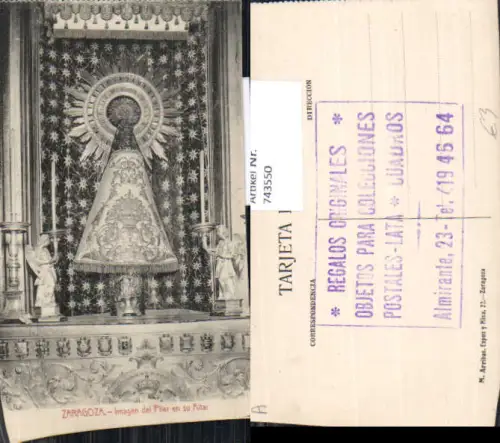 ZARAGOZA.-Imagen del Pilar en su Altar
Artikel Nr.
743550
TARJETA
CORRESPONDENCIA
DIRECCION
* REGALOS ORIGINALES *
OBJETOS PARA COLECCIONES
POSTALES-LATA * CUADROS
Almirante, 23-Tel. 419 46 64
M. Arribas. Espoz y Mina, 21.-Zaragoza
A